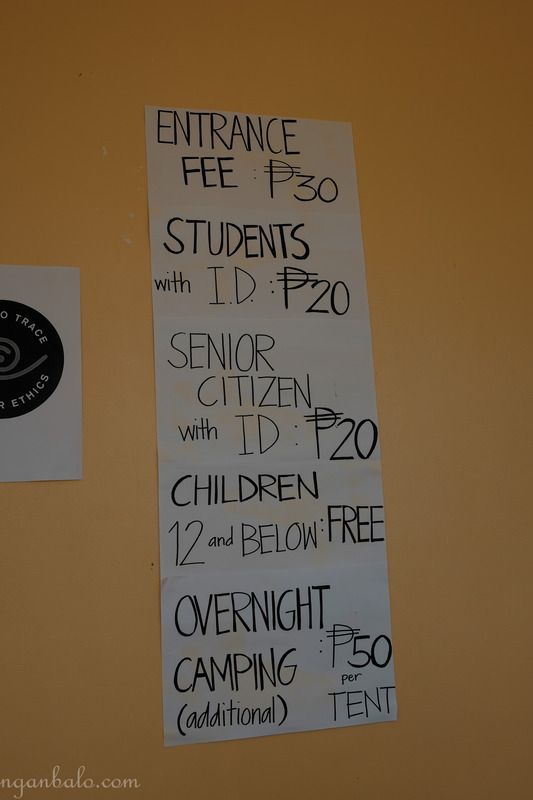 ENTRANCE
FEE : ₱30
STUDENTS
with I.D. : ₱20
SENIOR
CITIZEN
with ID : ₱20
CHILDREN
12 and BELOW : FREE
OVERNIGHT
CAMPING : ₱50
(additional) per
TENT
O TRACE
R ETHICS
nganbalo.com